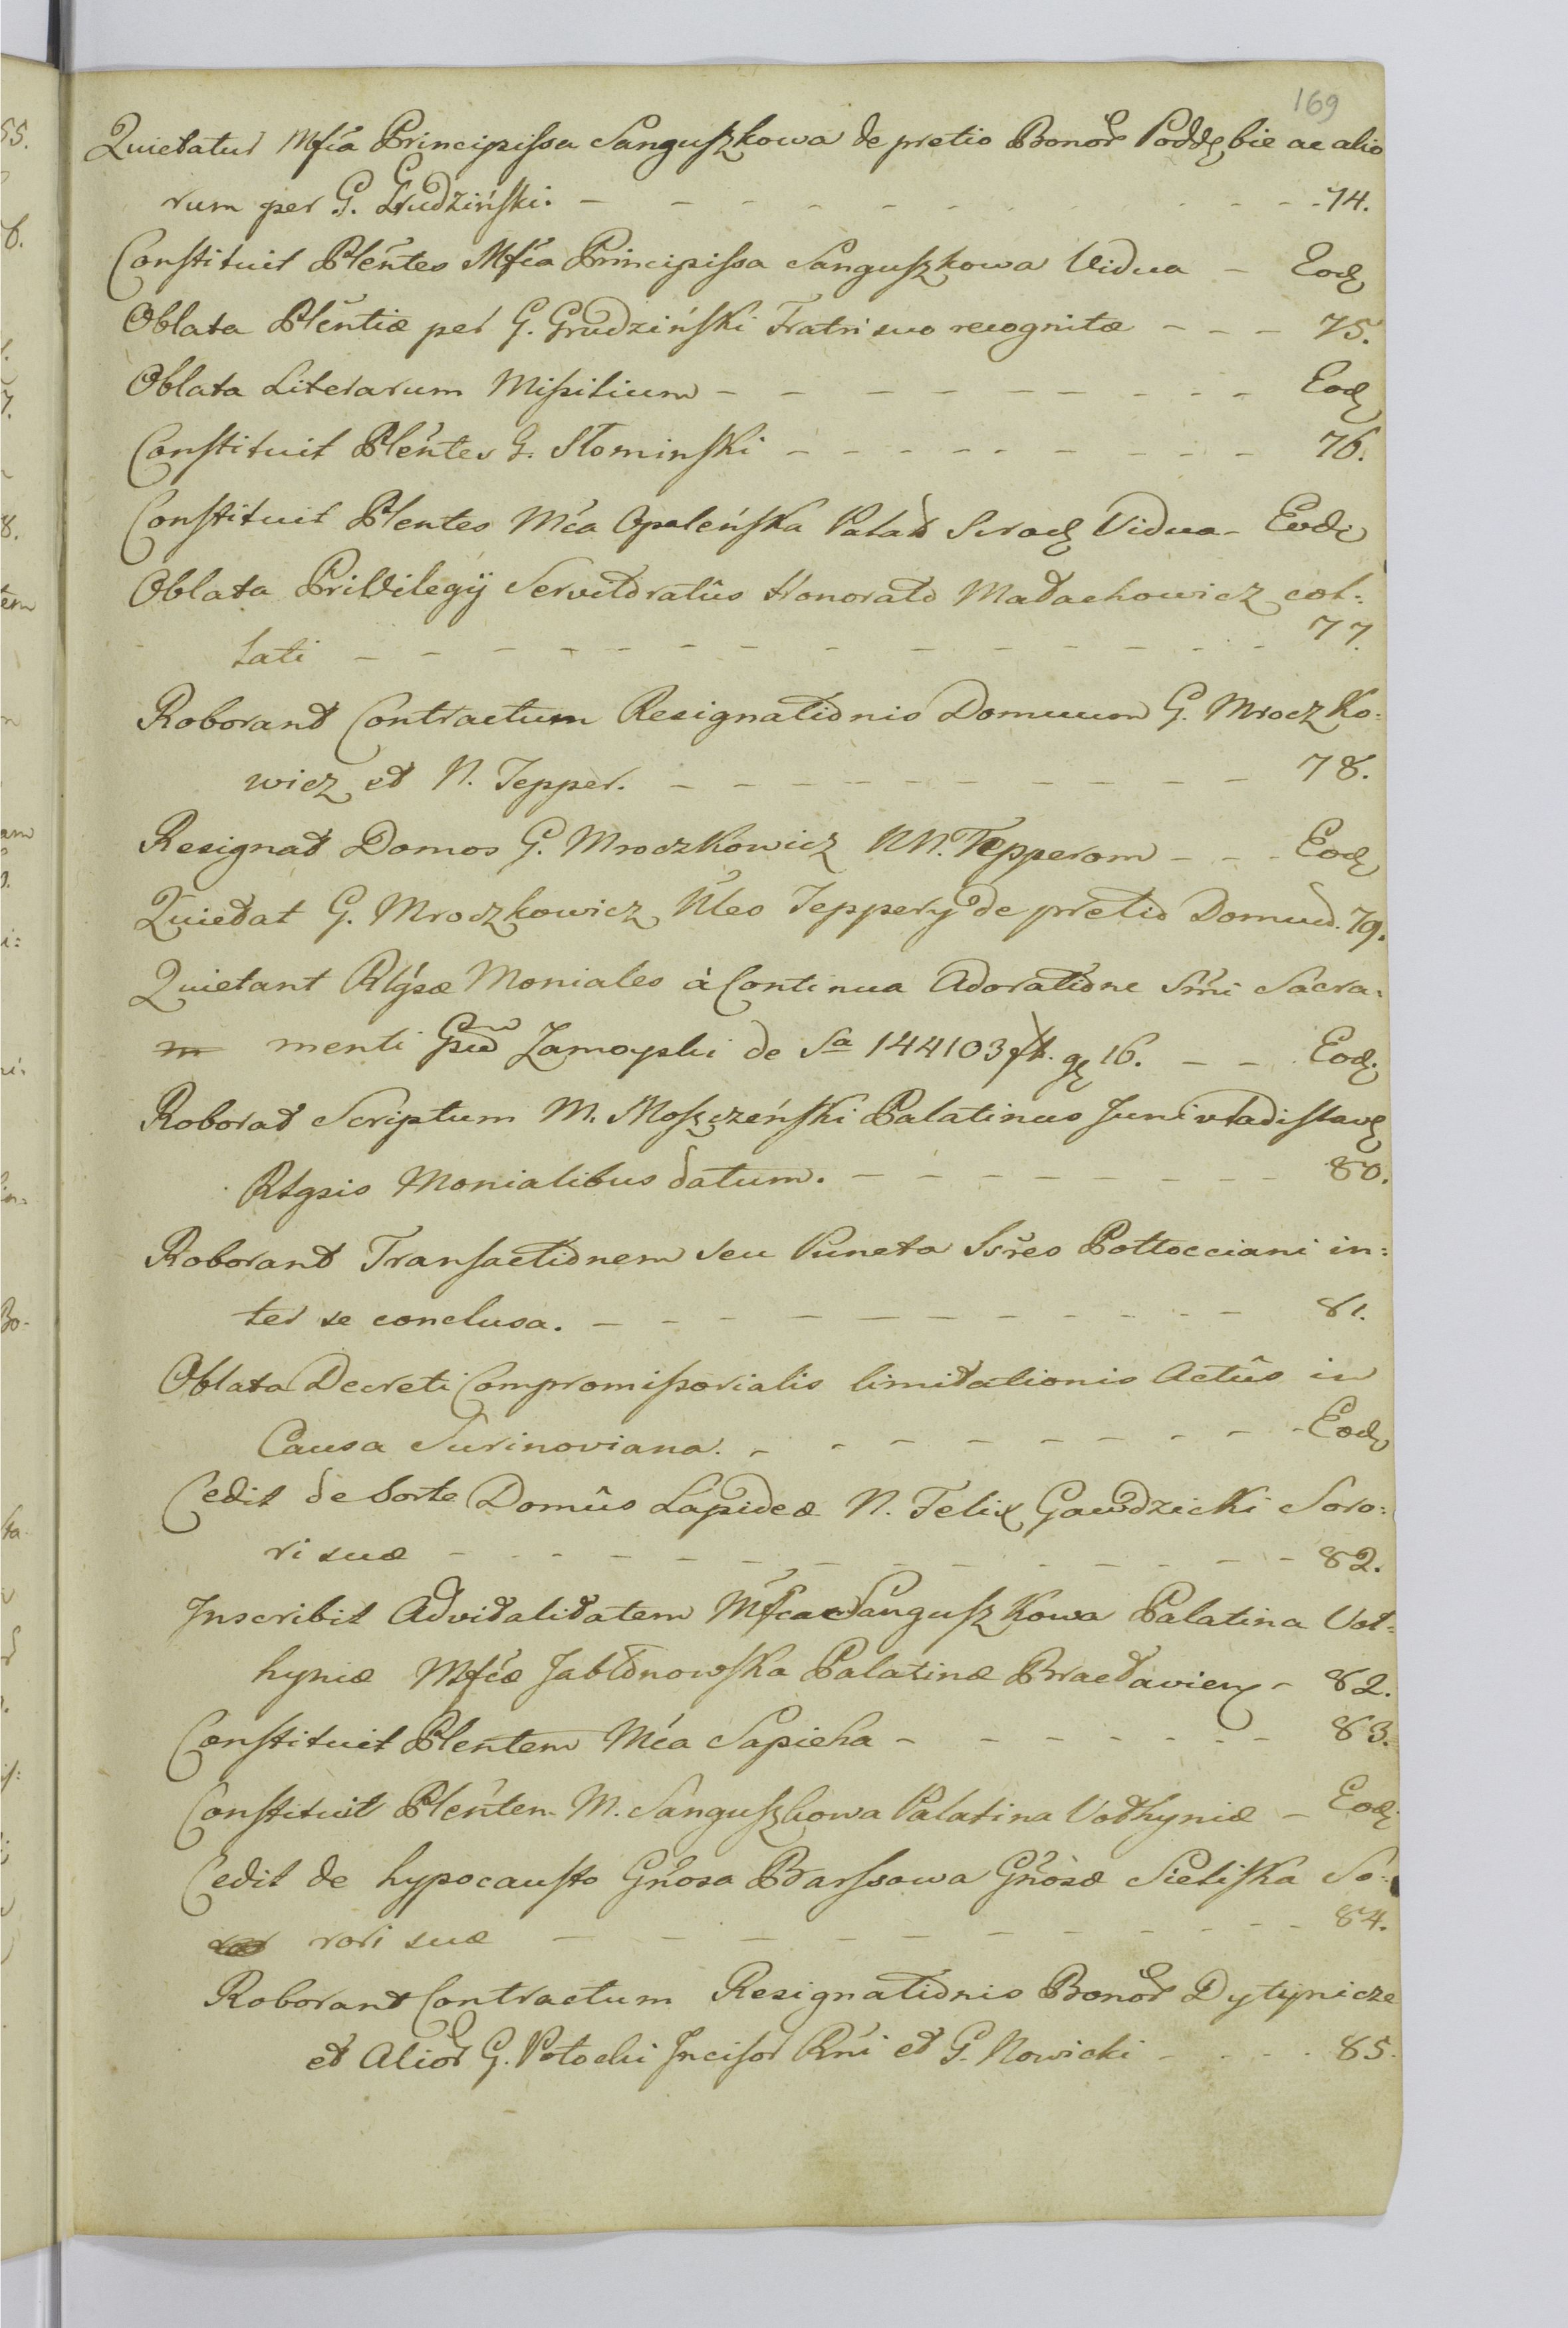 169
Quietatur Mfca Principissa Sanguszkowa de pretio Bonor Poddębie ac alio
rum per G. Grudziński. - - - 74.
Constituit Plentes Mfca Principissa Sanguszkowa Vidua - Eod
Oblata Plentiæ per G. Grudziński Fratri suo recognitæ - - - 75.
Oblata Literarum Missilium - - - Eod
Constituit Plentes G. Słominski - - - 76.
Constituit Plentes Mca Opaleńska Palat Sirad Vidua - Eod
Oblata Privilegij Servitoratûs Honorato Małachowicz col:
lati - - - 77.
Roborant Contractum Resignationis Domuum G. Mroczko:
wicz et N. Tepper. - - - 78.
Resignat Domos G. Mroczkowicz NN. Tepperom - - - Eod
Quietat G. Mroczkowicz Nles Teppery de pretio Domus. 79.
Quietant Rlgsæ Moniales à Continua Adoratione Smi Sacra:
menti Zamoyski de Sa 144103 fl. g 16. - - Eod.
Roborat Scriptum M. Moszczeński Palatinus Junivladislav
Rlgsis Monialibus datum. - - - 80.
Roborant Transactionem seu Puncta Ssres Pottocciani in:
ter se conclusa. - - - 81.
Oblata Decreti Compromissorialis limitationis Actûs in
Causa Turinoviana. - - - Eod
Cedit de sorte Domûs Lapideæ N. Felix Gawdzicki Soro:
ri suæ - - - 82.
Inscribit Advitalitatem Mfca Sanguszkowa Palatina Vol:
hyniæ Mfcæ Jabłonowska Palatinæ Bracłavien - 82.
Constituit Plentem Mca Sapieha - - - 83.
Constituit Plenten. M. Sanguszkowa Palatina Volhyniæ - Eod
Cedit de hypocausto Gnosa Barssowa Gnosæ Sieliska So:
rori suæ - - - 84.
Roborant Contractum Resignationis Bonor Dytynicze
et Alior G. Potocki Incisor Rni et G. Nowicki - - - 85.